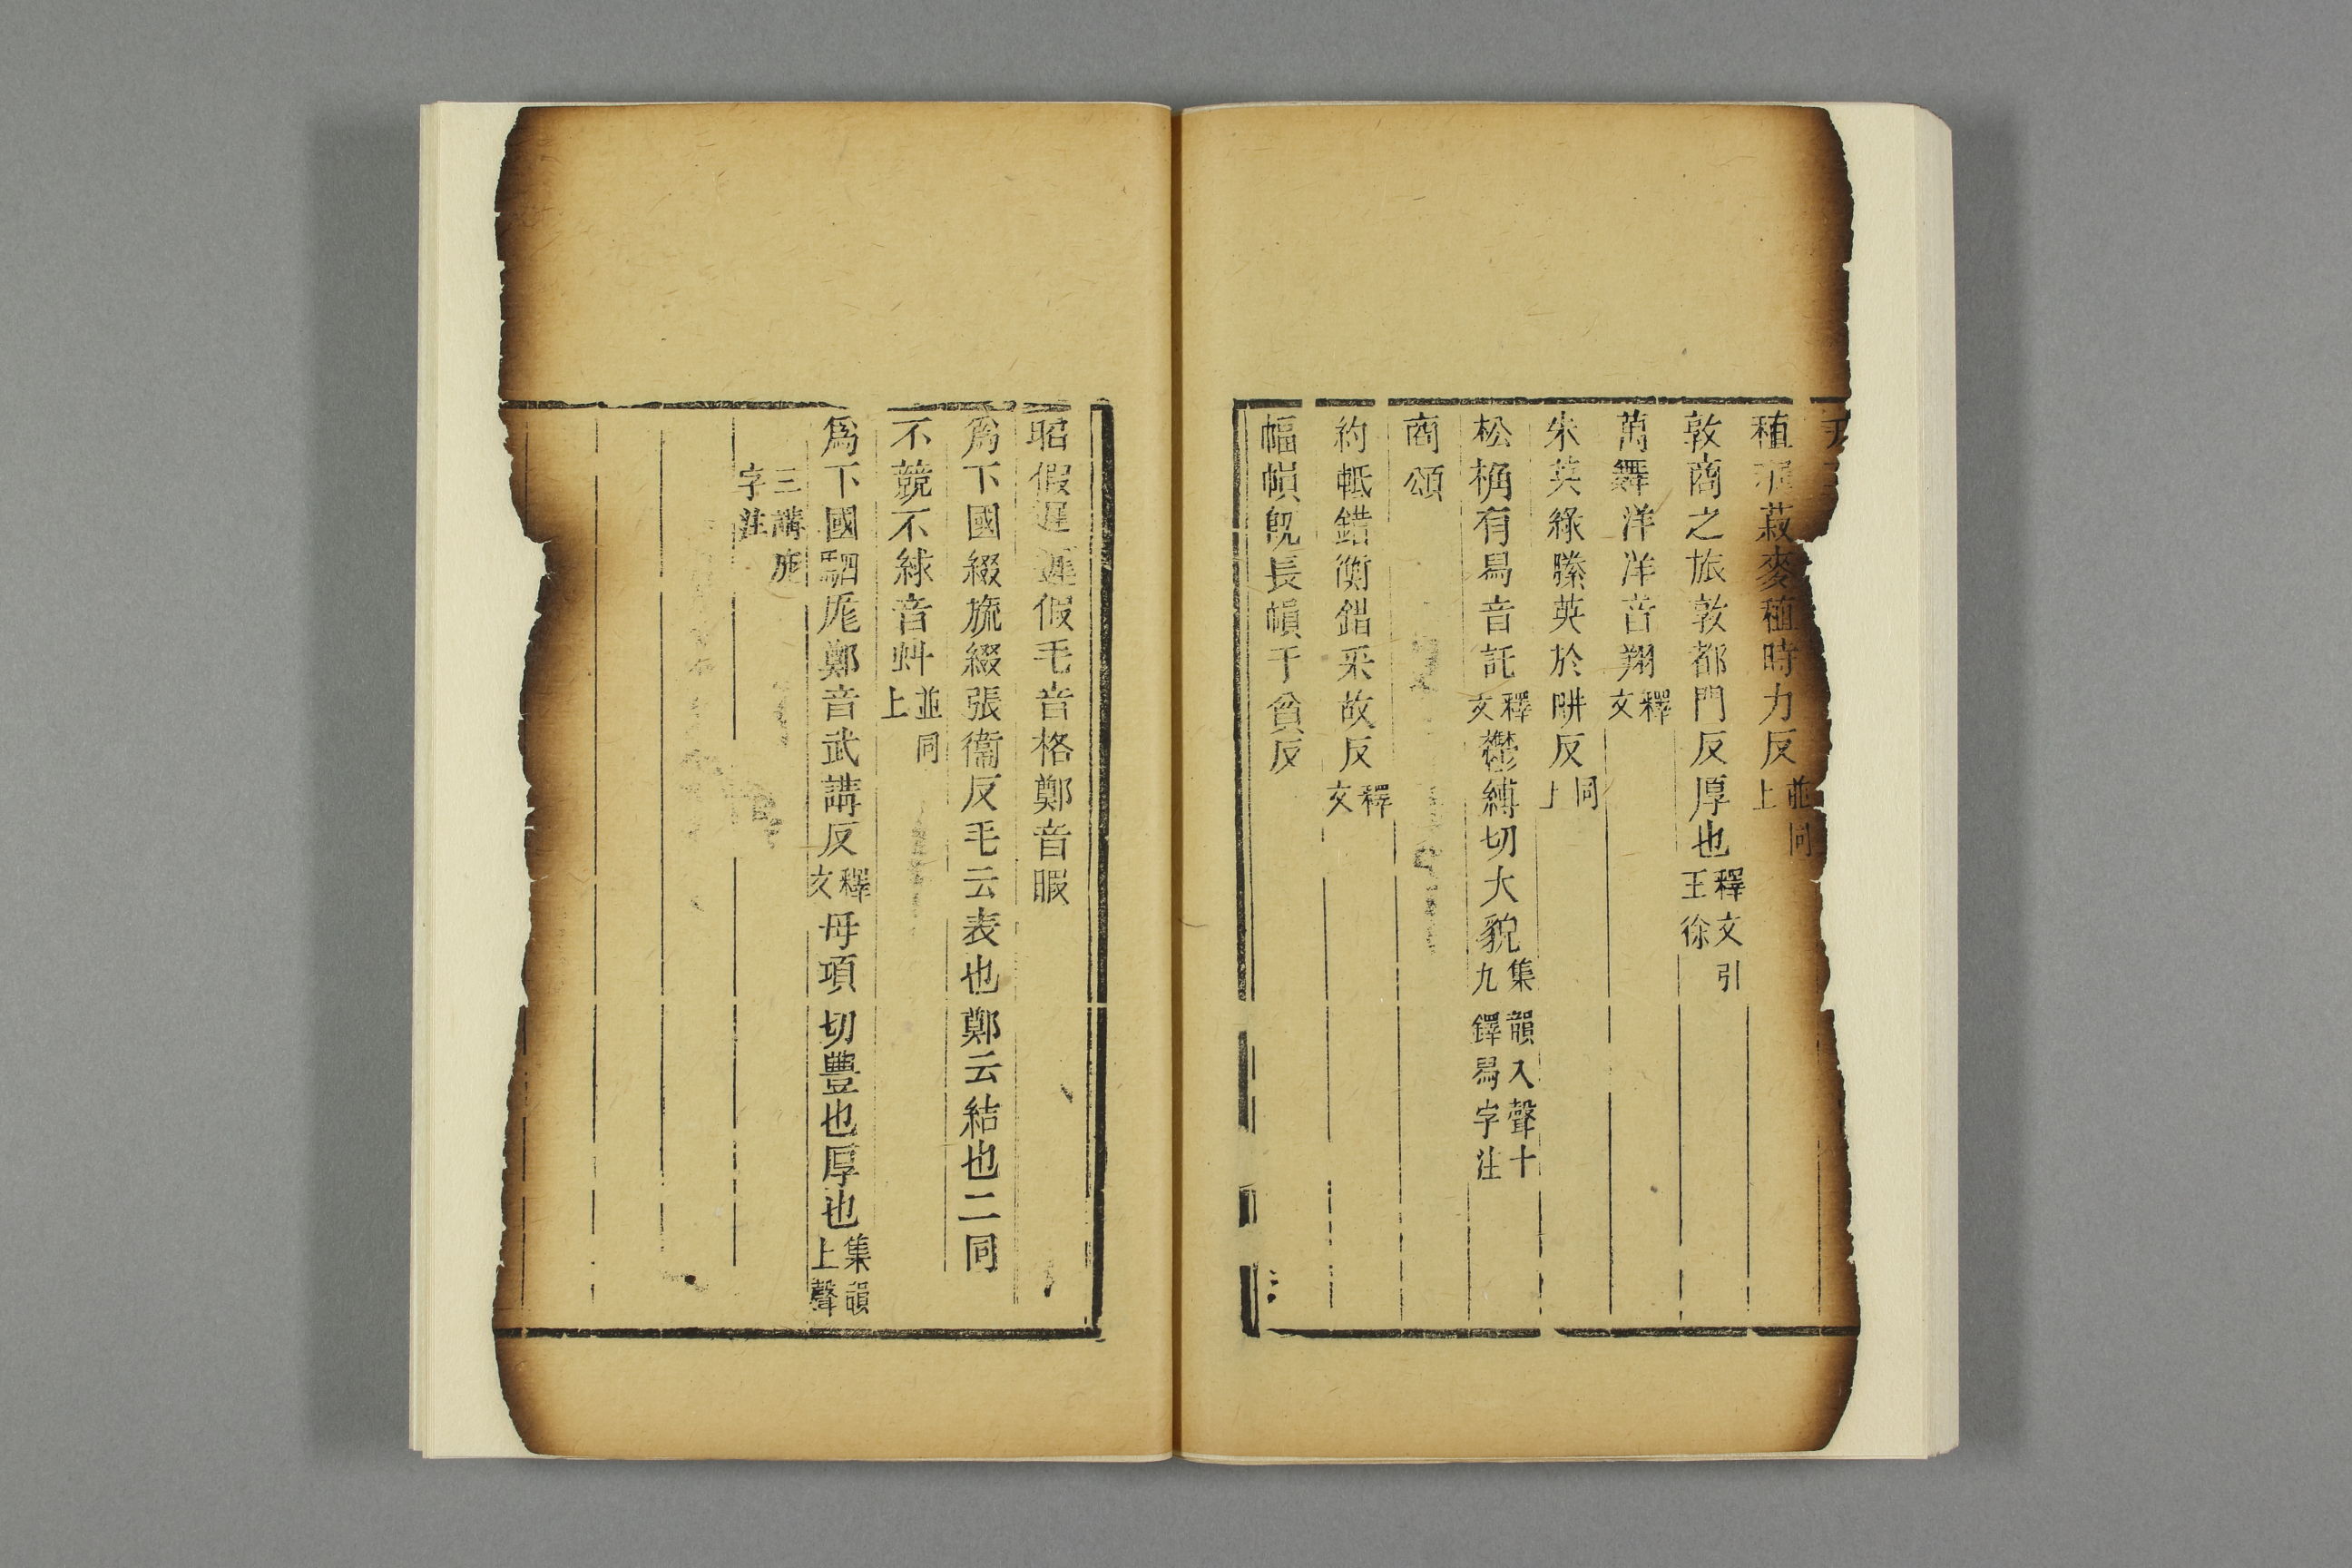 稙穉菽麥稙時力反並同上
敦商之旅敦都門反厚也釋文引王徐
萬舞洋洋音翔釋文
朱英綠縢英於耕反同上
松桷有舄音託釋文鬱縛切大貌集韻入聲十九鐸舄字注
商頌
約軝錯衡錯采故反釋文
幅幀旣長幀于貧反
昭假遲遲假毛音格鄭音暇
爲下國綴旒綴張衞反毛云表也鄭云結也二同
不競不絿音虯並同上
爲下國駟厖鄭音武講反釋文母項切豐也厚也集韻上聲
三講厖字注